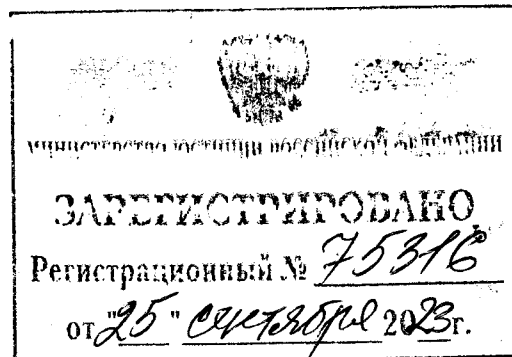 МИНИСТЕРСТВО ЮСТИЦИИ РОССИЙСКОЙ ФЕДЕРАЦИИ
ЗАРЕГИСТРИРОВАНО
Регистрационный № 75316
от "25" сентября 2023г.